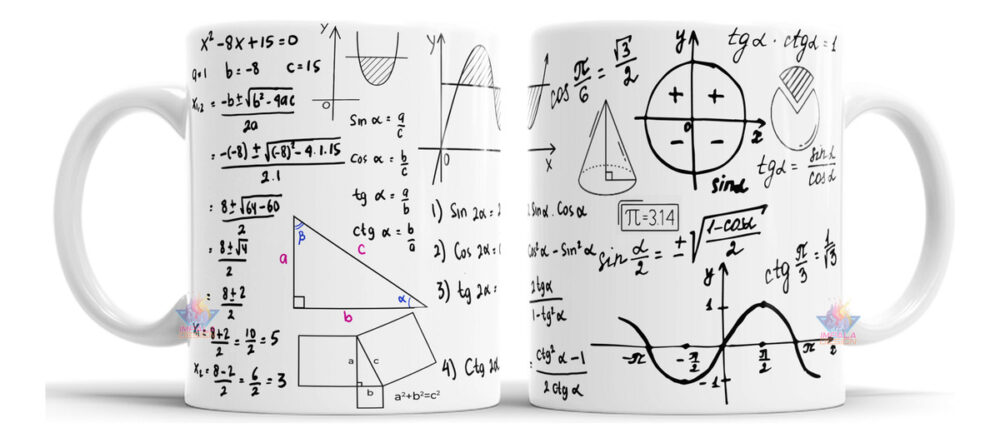 x² -8x+15=0
a=1 b=-8 c=15
x₁,₂ = -b±√b²-4ac / 2a
= -(-8) ± √(-8)²-4.1.15 / 2.1
= 8±√64-60 / 2
= 8±√4 / 2
= 8±2 / 2
x₁= 8+2 / 2 = 10 / 2 = 5
x₂= 8-2 / 2 = 6 / 2 = 3
y
o
Sin α = a/c
Cos α = b/c
tg α = a/b
ctg α = b/a
a
β
c
α
b
a
c
b
a²+b²=c²
y
0
1) Sin 2α =
2) Cos 2α =
3) tg 2α =
4) Ctg 2α
x
cos π/6 = √3/2
y
+ +
o
- -
x
sinα
tgα · ctgα = 1
tgα = sinα/cosα
2 Sinα. Cosα
Cos²α - Sin²α
2tgα / 1-tg²α
= ctg²α-1 / 2 ctgα
π=3.14
sin α/2 = ± √1-cosα / 2
ctg π/3 = 1/√3
y
1
-π -π/2 π/2 π x
-1